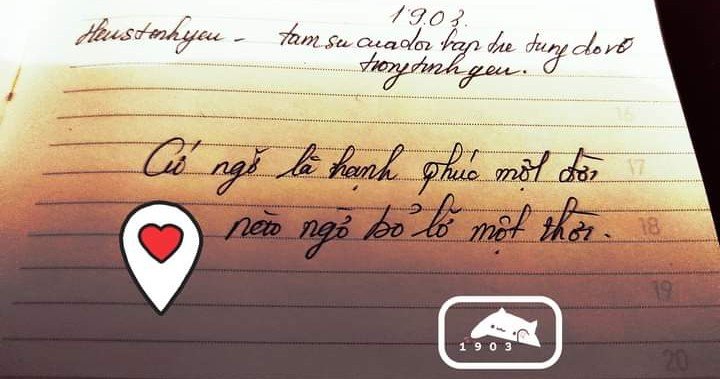 1903.
Heustonhyeu - tam su cuadoi ban tre tung do vo
trong tinh yeu.
Cứ ngỡ là hạnh phúc một đời
nào ngờ bỏ lỡ một thời.
16
17
18
19
20
1903